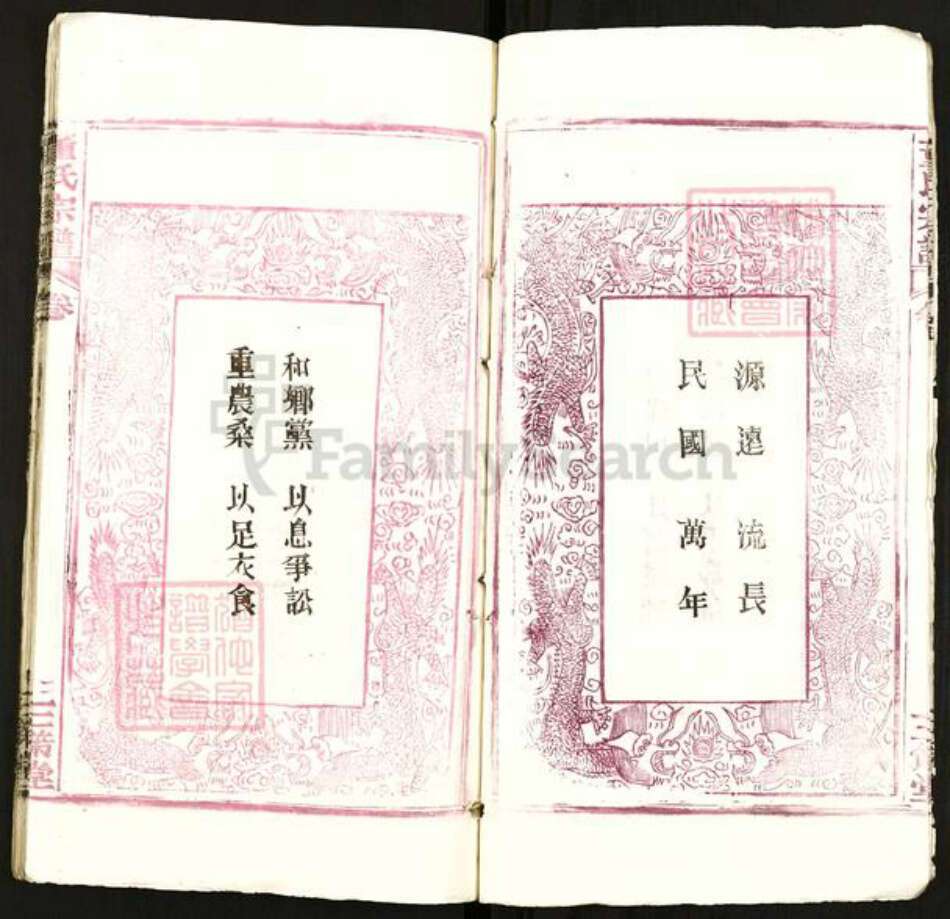 源遠流長
民國萬年
和鄉黨 以息爭訟
重農桑 以足衣食
氏宗譜
卷
FamilySearch